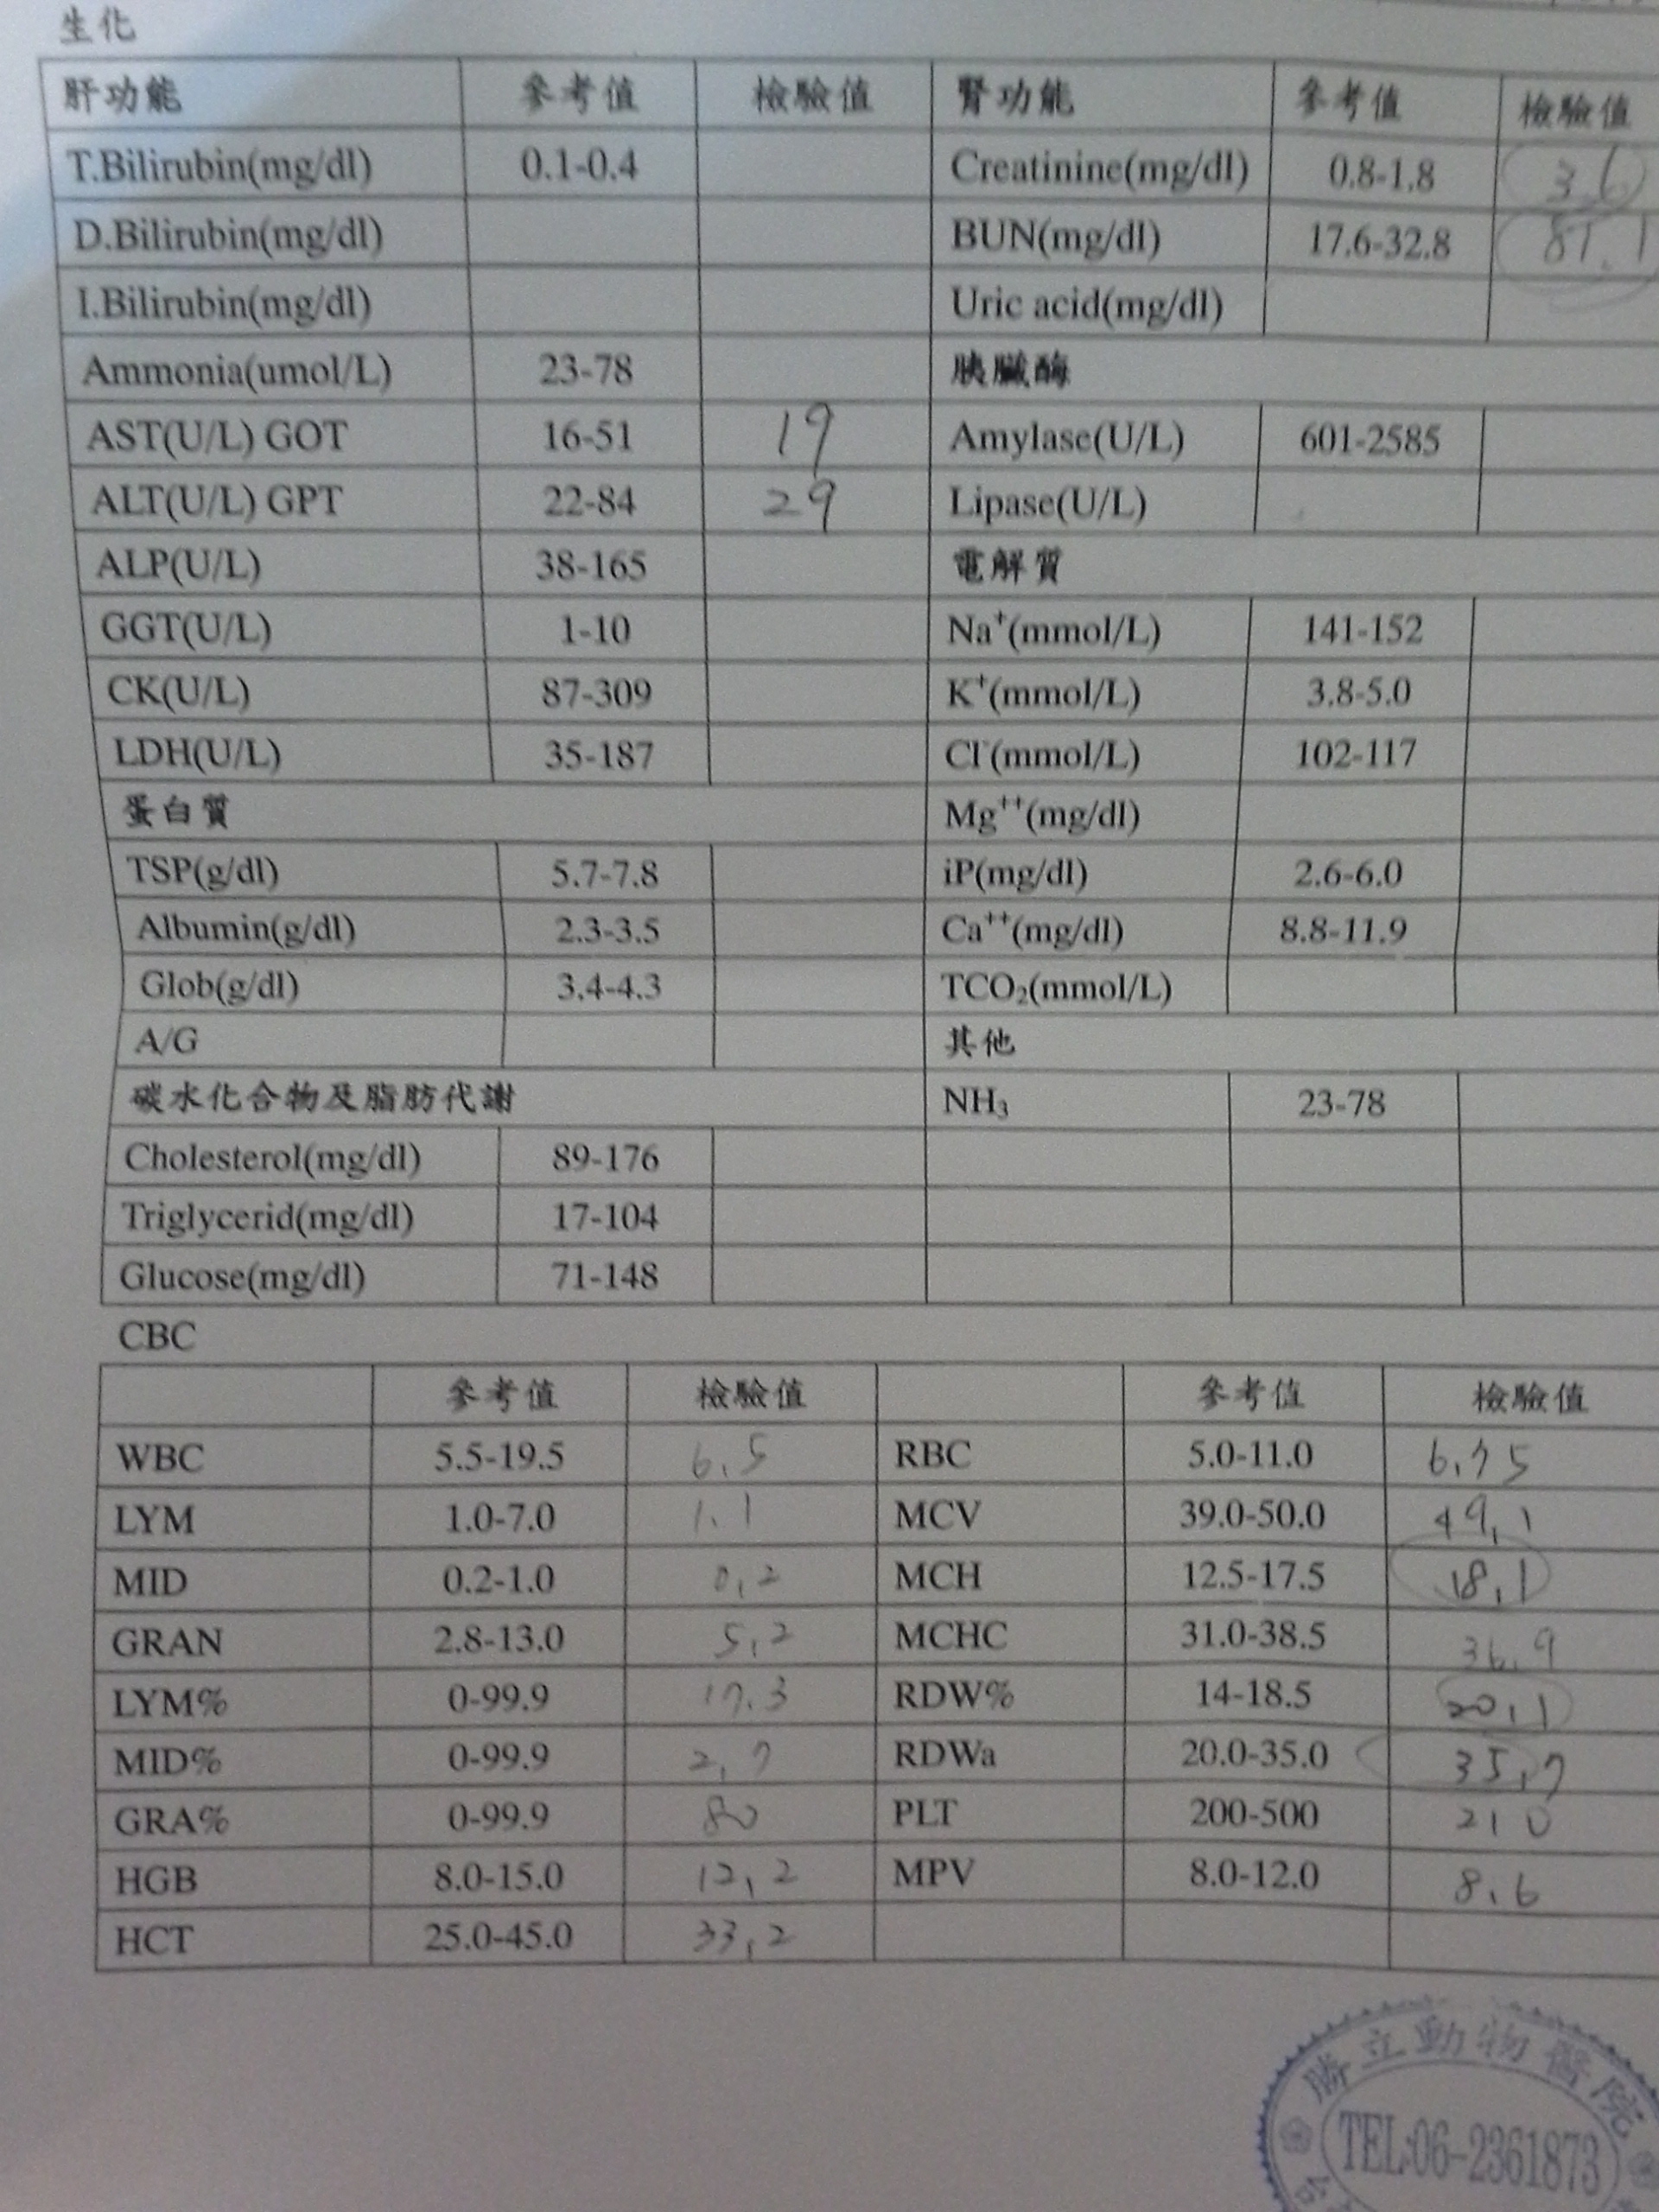 生化
肝功能 參考值 檢驗值 腎功能 參考值 檢驗值
T.Bilirubin(mg/dl) 0.1-0.4 Creatinine(mg/dl) 0.8-1.8 3.6
D.Bilirubin(mg/dl) BUN(mg/dl) 17.6-32.8 81.1
I.Bilirubin(mg/dl) Uric acid(mg/dl)
Ammonia(umol/L) 23-78 胰臟酶
AST(U/L) GOT 16-51 19 Amylase(U/L) 601-2585
ALT(U/L) GPT 22-84 29 Lipase(U/L)
ALP(U/L) 38-165 電解質
GGT(U/L) 1-10 Na⁺(mmol/L) 141-152
CK(U/L) 87-309 K⁺(mmol/L) 3.8-5.0
LDH(U/L) 35-187 Cl⁻(mmol/L) 102-117
蛋白質 Mg⁺⁺(mg/dl)
TSP(g/dl) 5.7-7.8 iP(mg/dl) 2.6-6.0
Albumin(g/dl) 2.3-3.5 Ca⁺⁺(mg/dl) 8.8-11.9
Glob(g/dl) 3.4-4.3 TCO₂(mmol/L)
A/G 其他
碳水化合物及脂肪代謝 NH₃ 23-78
Cholesterol(mg/dl) 89-176
Triglycerid(mg/dl) 17-104
Glucose(mg/dl) 71-148
CBC
參考值 檢驗值 參考值 檢驗值
WBC 5.5-19.5 6.5 RBC 5.0-11.0 6.75
LYM 1.0-7.0 1.1 MCV 39.0-50.0 49.1
MID 0.2-1.0 0.2 MCH 12.5-17.5 18.1
GRAN 2.8-13.0 5.2 MCHC 31.0-38.5 36.9
LYM% 0-99.9 17.3 RDW% 14-18.5 20.1
MID% 0-99.9 2.7 RDWa 20.0-35.0 35.7
GRA% 0-99.9 80 PLT 200-500 210
HGB 8.0-15.0 12.2 MPV 8.0-12.0 8.6
HCT 25.0-45.0 33.2
勝立動物醫院
TEL:06-2361873